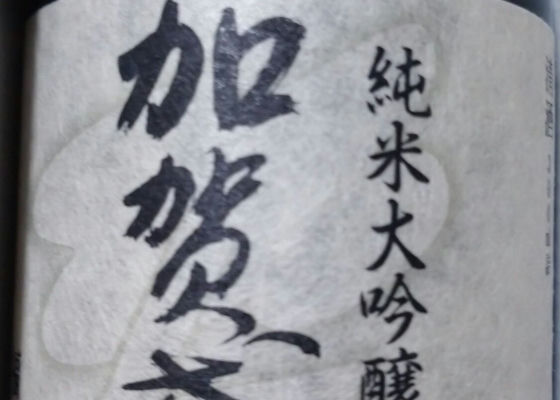 純米大吟醸
加賀